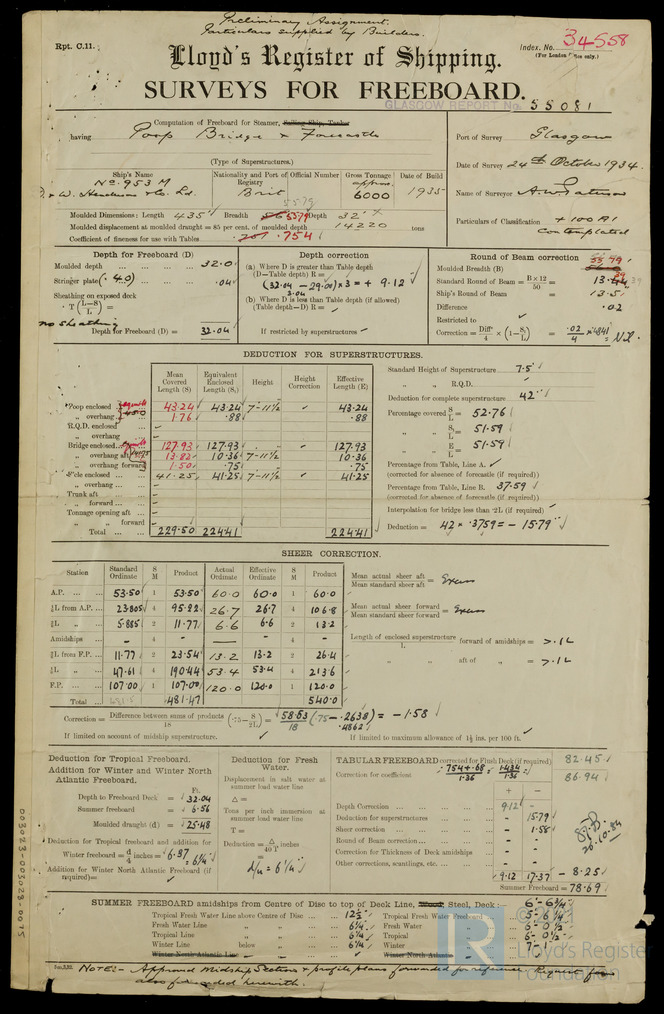 Preliminary Assignment.
Particulars supplied by Builders.
Rpt. C.11.
Index. No. 34558
(For London Office only.)
Lloyd's Register of Shipping.
SURVEYS FOR FREEBOARD.
GLASGOW REPORT No. 55081
Computation of Freeboard for Steamer, Sailing Ship, Tanker
having Poop Bridge & Forecastle
(Type of Superstructures.)
Port of Survey Glasgow
Date of Survey 24th October 1934.
Name of Surveyor
Particulars of Classification +100 A1
Contemplated
Ship's Name Nationality and Port of Registry Official Number Gross Tonnage Date of Build
No. 953 M
D. & W. Henderson & Co. Ld. Brit approx. 6000 1935
Moulded Dimensions: Length 435' Breadth 55.79 Depth 32'
Moulded displacement at moulded draught = 85 per cent. of moulded depth 14220 tons
Coefficient of fineness for use with Tables .754
Depth for Freeboard (D)
Moulded depth ... 32.0
Stringer plate (.40) ... .04
Sheathing on exposed deck
T (L-S/L) =
no sheathing
Depth for Freeboard (D) = 32.04
Depth correction
(a) Where D is greater than Table depth
(D—Table depth) R =
(32.04 - 29.00) × 3 = + 9.12
3.04
(b) Where D is less than Table depth (if allowed)
(Table depth—D) R =
If restricted by superstructures
Round of Beam correction
Moulded Breadth (B) 55.79
Standard Round of Beam = B×12/50 = 13.39
Ship's Round = 13.5
Difference .02
Restricted to
Correction = Diff/4 × (1-S/L) = .02/4 × .4841 = Nil.
DEDUCTION FOR SUPERSTRUCTURES.
Mean Covered Length (S) Equivalent Enclosed Length (S₁) Height Height Correction Effective Length (E)
Poop enclosed 43.24 43.24 7'-11½ 43.24
„ overhang 1.76 .88 .88
R.Q.D. enclosed -
„ overhang -
Bridge enclosed 127.93 127.93 127.93
„ overhang aft 13.82 10.36 7'-11½ 10.36
„ overhang forward 1.50 .75 .75
F'cle enclosed 41.25 41.25 7'-11½ 41.25
„ overhang -
Trunk aft -
„ forward -
Tonnage opening aft -
„ „ forward -
Total 229.50 224.41 224.41
Standard Height of Superstructure 7.5'
„ „ R.Q.D.
Deduction for complete superstructure 42"
Percentage covered S/L = 52.76
„ „ S₁/L = 51.59
„ „ E/L = 51.59
Percentage from Table, Line A.
(corrected for absence of forecastle (if required))
Percentage from Table, Line B. 37.59
(corrected for absence of forecastle (if required))
Interpolation for bridge less than ·2L (if required)
Deduction = 42 × .3759 = - 15.79
SHEER CORRECTION.
Station Standard Ordinate S M Product Actual Ordinate Effective Ordinate S M Product
A.P. 53.50 1 53.50 60.0 60.0 1 60.0
⅙L from A.P. 23.805 4 95.22 26.7 26.7 4 106.8
⅓L „ 5.885 2 11.77 6.6 6.6 2 13.2
Amidships - 4 - - - 4 -
⅓L from F.P. 11.77 2 23.54 13.2 13.2 2 26.4
⅙L „ 47.61 4 190.44 53.4 53.4 4 213.6
F.P. 107.00 1 107.00 120.0 120.0 1 120.0
Total 481.47 540.0
Mean actual sheer aft / Mean standard sheer aft = Excess
Mean actual sheer forward / Mean standard sheer forward = Excess
Length of enclosed superstructure / L forward of amidships = >.1L
„ „ aft of „ = >.1L
Correction = Difference between sums of products / 18 (·75 - S/2L) = 58.53/18 (.75 - .2638) = - 1.58
.4862
If limited on account of midship superstructure.
If limited to maximum allowance of 1½ ins. per 100 ft.
Deduction for Tropical Freeboard.
Addition for Winter and Winter North Atlantic Freeboard.
Ft.
Depth to Freeboard Deck = 32.04
Summer freeboard = 6.56
Moulded draught (d) = 25.48
Deduction for Tropical freeboard and addition for
Winter freeboard = d/4 inches = 6.37 = 6¼"
Addition for Winter North Atlantic Freeboard (if required) =
Deduction for Fresh Water.
Displacement in salt water at summer load water line
Δ =
Tons per inch immersion at summer load water line
T =
Deduction = Δ/40T inches
=
d/4 = 6¼"
TABULAR FREEBOARD corrected for Flush Deck (if required) 82.45
Correction for coefficient .754+.68/1.36 = 1.434/1.36 86.94
+ -
Depth Correction 9.12 -
Deduction for superstructures - 15.79
Sheer correction - 1.58
Round of Beam correction - -
Correction for Thickness of Deck amidships - -
Other corrections, scantlings, etc. - -
9.12 17.37 - 8.25
Summer Freeboard = 78.69
SUMMER FREEBOARD amidships from Centre of Disc to top of Deck Line, Wood, Steel, Deck: 6'-6¾"
Tropical Fresh Water Line above Centre of Disc 12½"
Fresh Water Line „ „ 6¼"
Tropical Line „ „ 6¼"
Winter Line below „ 6¼"
Winter North Atlantic Line „
Tropical Fresh Water Freeboard 5'-6¼"
Fresh Water „ 6'-0½"
Tropical „ 6'-0½"
Winter „ 7'-1"
Winter North Atlantic „
NOTE:- Approved Midship Section & profile plans forwarded for reference. Request form
also forwarded herewith.
003023-003028-0075
© 2021
LR
Lloyd's Register
Foundation